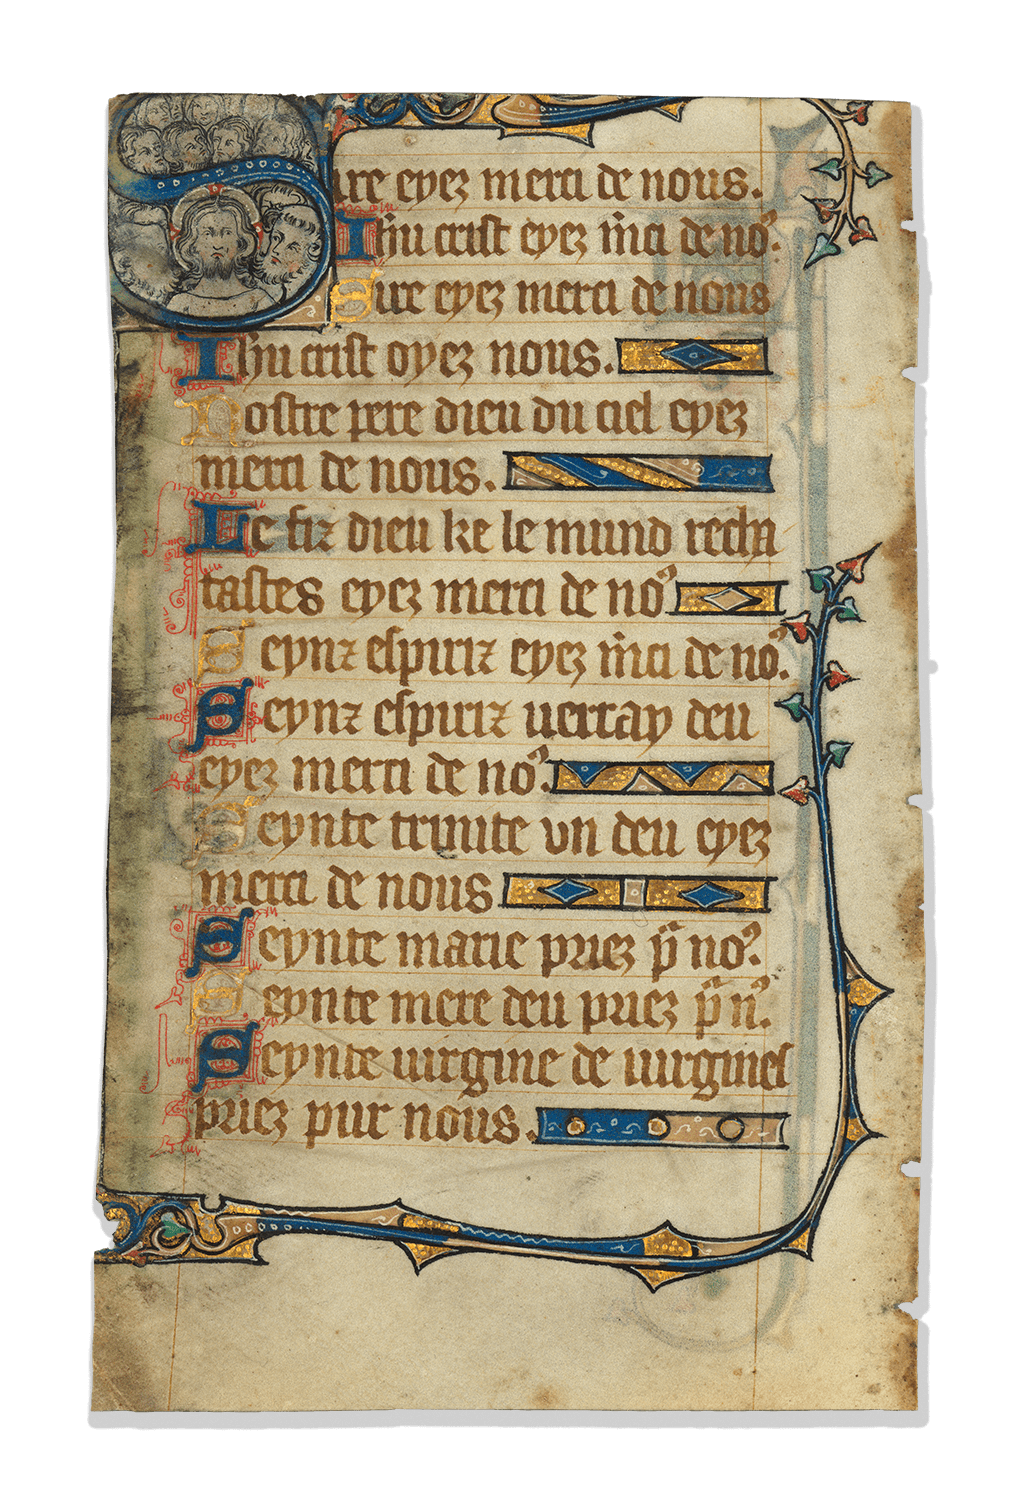 Sire eyez merci de nous.
Ihu crist eyez m̄ci de no⁹.
Sire eyez merci de nous
Ihu crist oyez nous.
Nostre pere dieu du ciel eyez
merci de nous.
Le fiz dieu ke le mund recha
tastes eyez merci de no⁹
Seynz espiriz eyez m̄ci de no⁹.
Seynz espiriz verray deu
eyez merci de no⁹.
Seynte trinite vn deu eyez
merci de nous
Seynte marie priez p̄ no⁹.
Seynte mere deu priez p̄ n⁹.
Seynte uirgine de uirgines
priez pur nous.